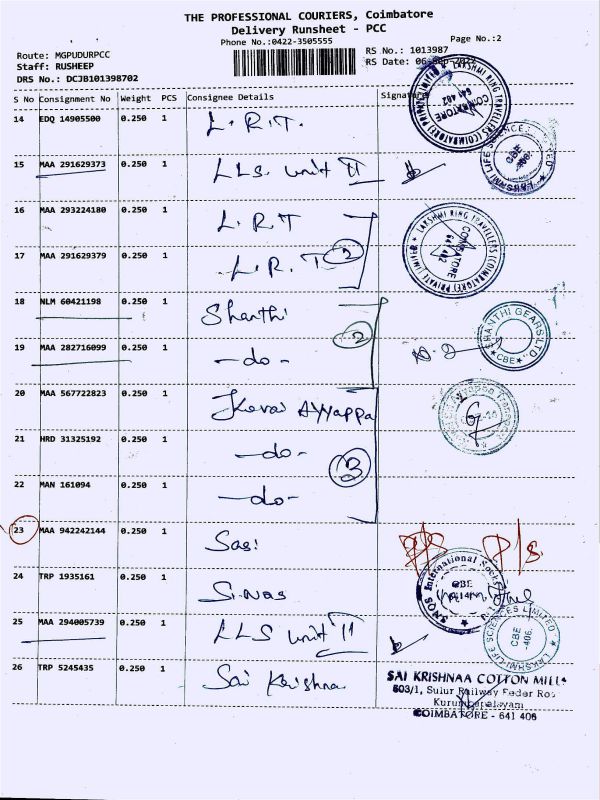 THE PROFESSIONAL COURIERS, Coimbatore
Delivery Runsheet - PCC
Phone No.:0422-3505555
Page No.:2
Route: MGPUDURPCC
Staff: RUSHEEP
DRS No.: DCJB101398702
RS No.: 1013987
RS Date: 06-Sep-20
S No Consignment No Weight PCS Consignee Details Signature
14 EDQ 14905500 0.250 1 L.R.T.
15 MAA 291629373 0.250 1 LLS. unit II
16 MAA 293224180 0.250 1 L.R.T
17 MAA 291629379 0.250 1 L.R.T 2
18 NLM 60421198 0.250 1 Shanthi
19 MAA 282716099 0.250 1 -do- 2
20 MAA 567722823 0.250 1 Kovai AYYappa
21 HRD 31325192 0.250 1 -do-
22 MAN 161094 0.250 1 -do- 3
23 MAA 942242144 0.250 1 Sasi P/s.
24 TRP 1935161 0.250 1 S.nos
25 MAA 294005739 0.250 1 LLS unit II
26 TRP 5245435 0.250 1 Sai Krishna
LAKSHMI RING TRAVELLERS (COIMBATORE) PRIVATE LIMITED
COIMBATORE
641 402
LAKSHMI LIFE SCIENCES LIMITED
CBE
-406.
LAKSHMI RING TRAVELLERS (COIMBATORE) PRIVATE LIMITED
COIMBATORE
641 402
SHANTHI GEARS LTD.
CBE
S.NOS International
CBE
LAKSHMI LIFE SCIENCES LIMITED
CBE
-406.
SAI KRISHNAA COTTON MILLS
603/1, Sulur Railway Feder Roa
Kurumbapalayam
COIMBATORE - 641 406